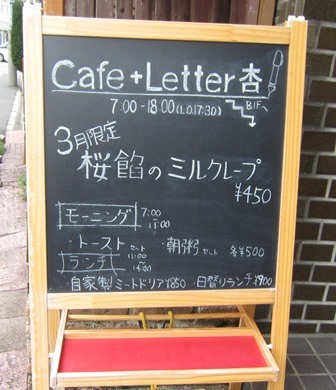 Cafe+Letter 杏
7:00-18:00(L.O.17:30) B1F
3月限定
桜餡のミルクレープ
¥450
モーニング 7:00~11:00
・トーストセット ・朝粥セット 各¥500
ランチ 11:00~14:00
・自家製ミートドリア¥850 ・日替りランチ¥900